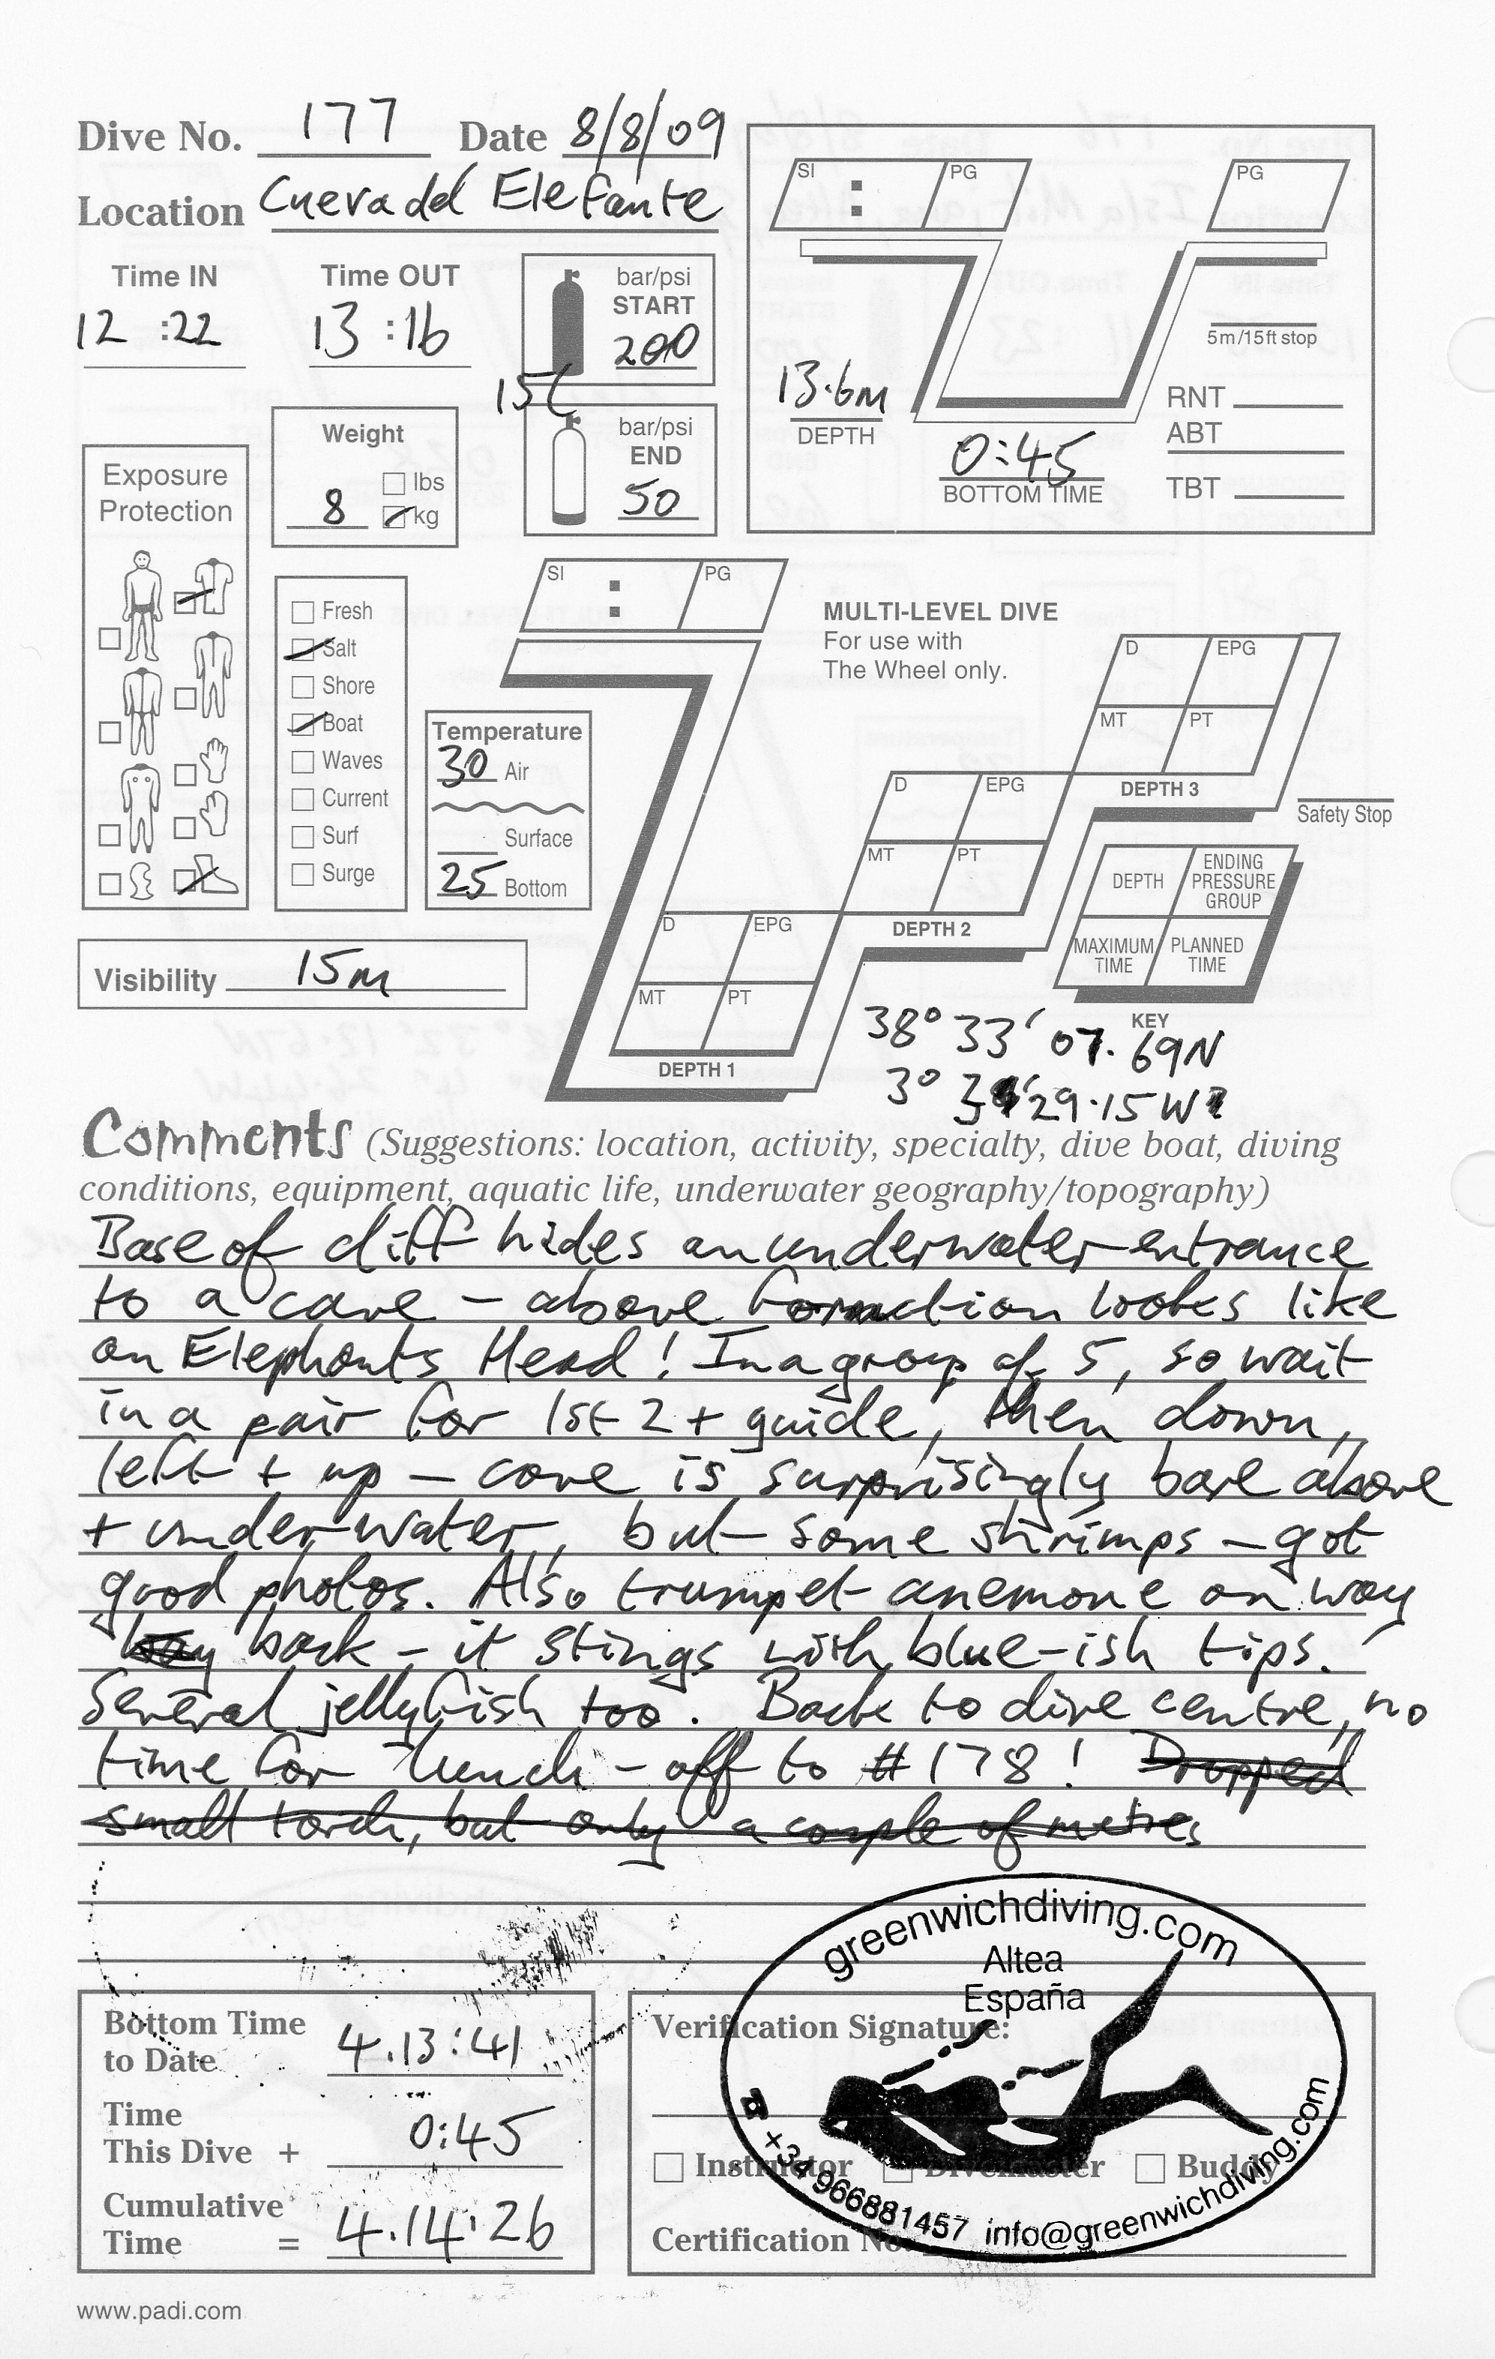 Dive No. 177 Date 8/8/09
Location Cueva del Elefante
Time IN Time OUT
12 :22 13 :16
bar/psi
START
200
15L
bar/psi
END
50
SI : PG PG
5m/15ft stop
13.6m
DEPTH
0:45
BOTTOM TIME
RNT
ABT
TBT
Weight
lbs
8 kg
Exposure
Protection
Fresh
Salt
Shore
Boat
Waves
Current
Surf
Surge
Temperature
30 Air
Surface
25 Bottom
Visibility 15m
SI : PG
MULTI-LEVEL DIVE
For use with
The Wheel only.
D EPG
MT PT
DEPTH 3
D EPG
MT PT
DEPTH 2
D EPG
MT PT
DEPTH 1
Safety Stop
DEPTH ENDING PRESSURE GROUP
MAXIMUM TIME PLANNED TIME
KEY
38° 33' 07.69N
3° 29.15W
Comments (Suggestions: location, activity, specialty, dive boat, diving
conditions, equipment, aquatic life, underwater geography/topography)
Base of cliff hides an underwater entrance
to a cave – above formation looks like
an Elephants Head! In a group of 5, so wait
in a pair for 1st 2 + guide, then down,
left + up – cave is surprisingly bare above
+ underwater, but some shrimps – got
good photos. Also trumpet anemone on way
back – it stings with blue-ish tips.
Several jellyfish too. Back to dive centre, no
time for lunch – off to #178! Dropped
small torch, but only a couple of metres
greenwichdiving.com
Altea
España
Bottom Time
to Date 4.13:41
Time
This Dive + 0:45
Cumulative
Time = 4.14:26
Verification Signature:
Instructor Divemaster Buddy
Certification No.
+34 966881457 info@greenwichdiving.com
www.padi.com